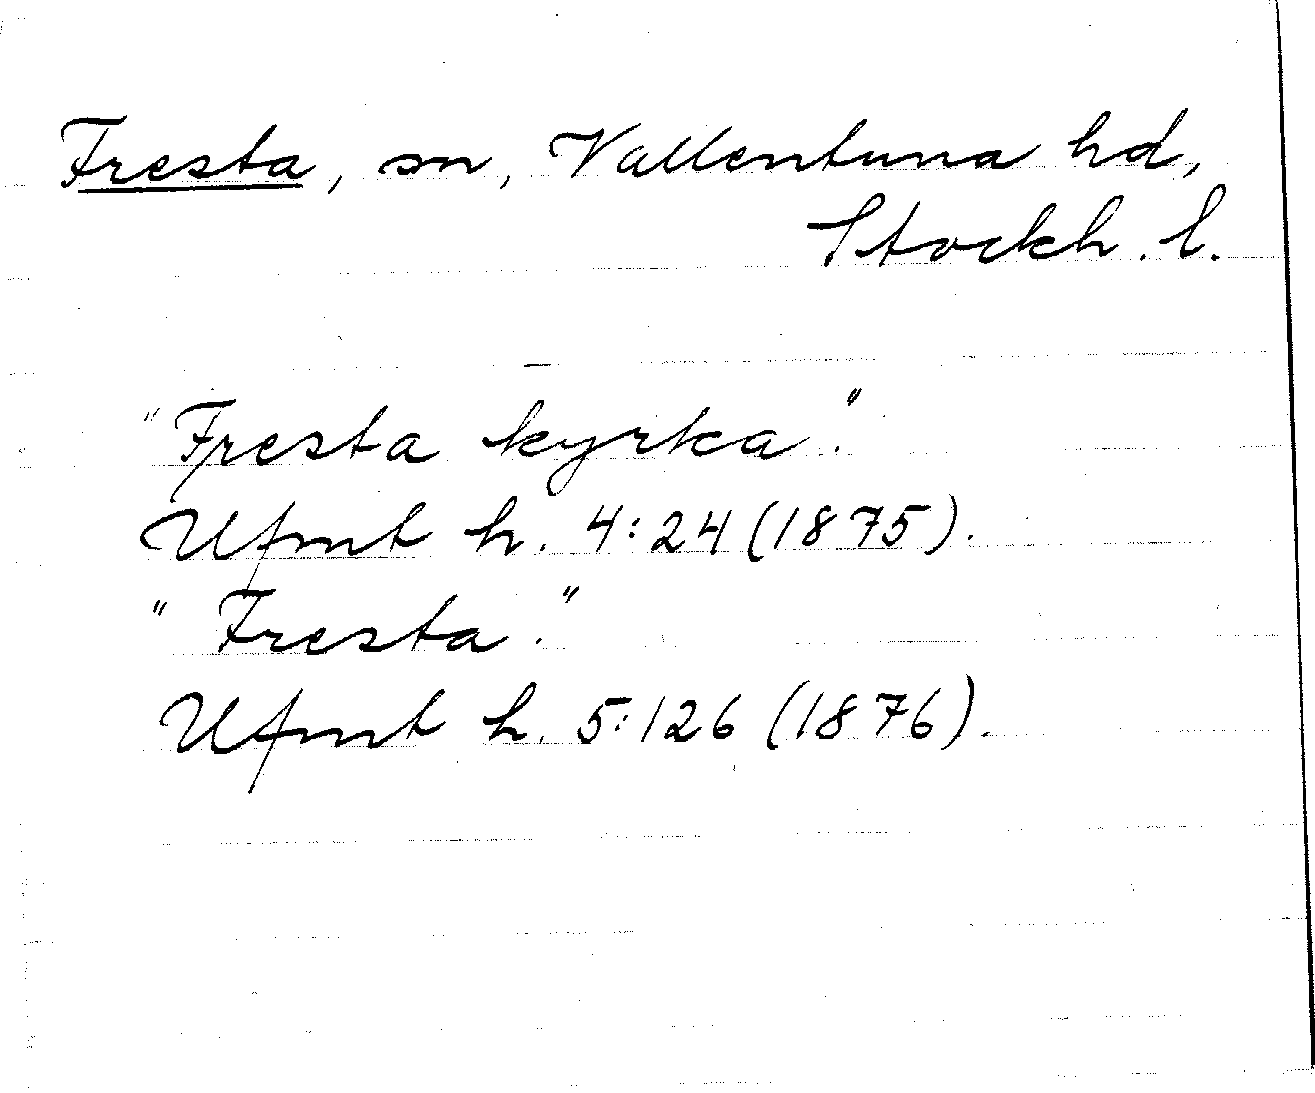 Fresta, sn, Vallentuna hd,
Stockh. l.
"Fresta kyrka."
Ufmt h. 4:24 (1875).
"Fresta."
Ufmt h. 5:126 (1876).